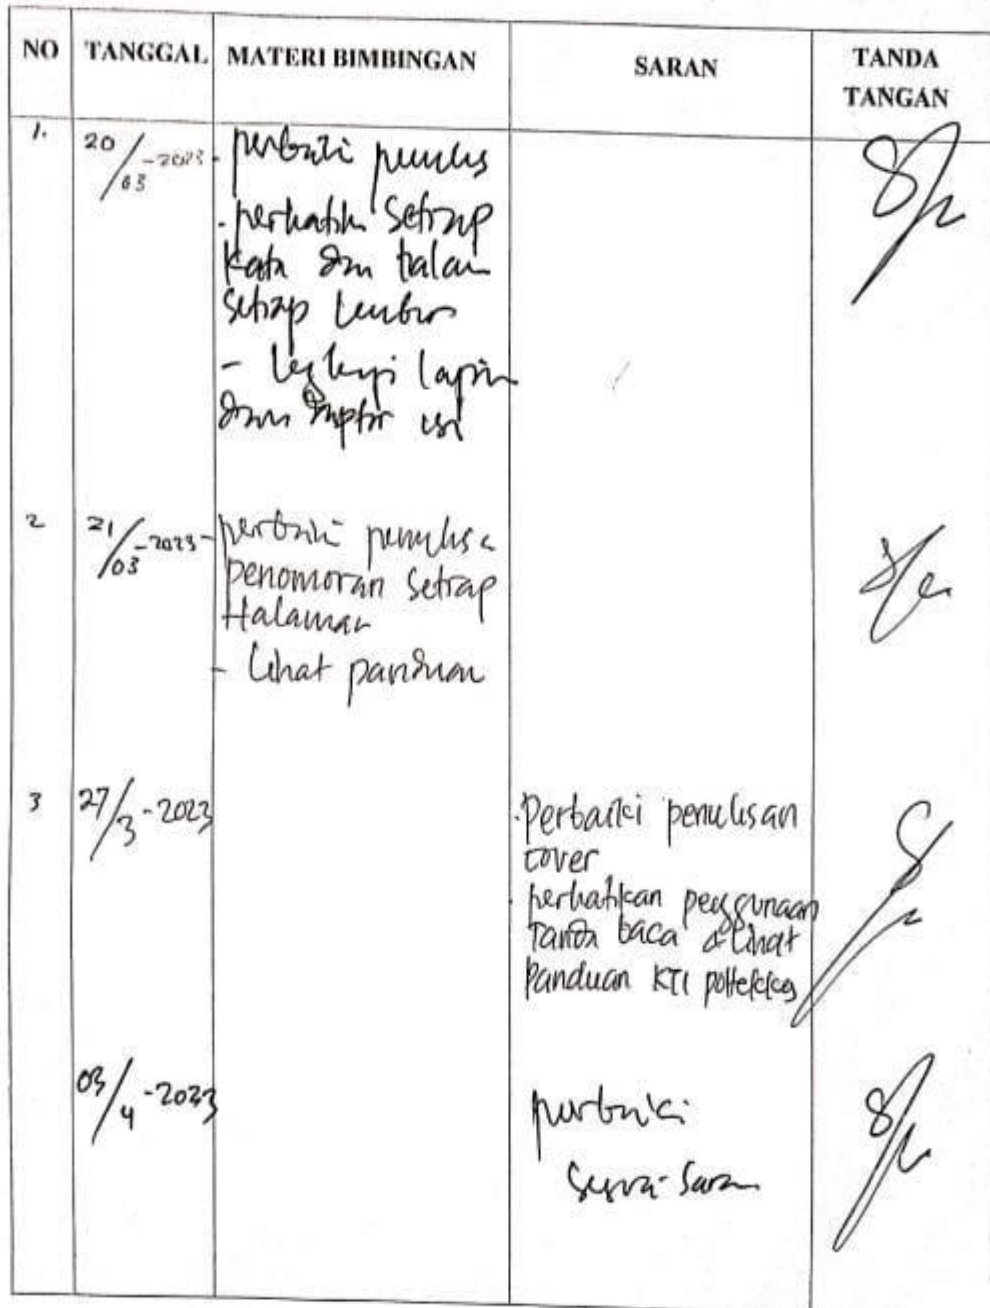 NO TANGGAL MATERI BIMBINGAN SARAN TANDA TANGAN
1. 20/03-2023 - perbaiki penulis
- perhatikn setiap
kata dan
setiap
-
dan isi
2 21/03-2023 - perbaiki penulisa
penomoran setiap
Halaman
- Lihat panduan
3 27/3-2023 Perbaiki penulisan
cover
- perhatikan penggunaan
tanda baca & Lihat
panduan KTI poltekkes
03/4-2023 perbaiki
sesuai saran